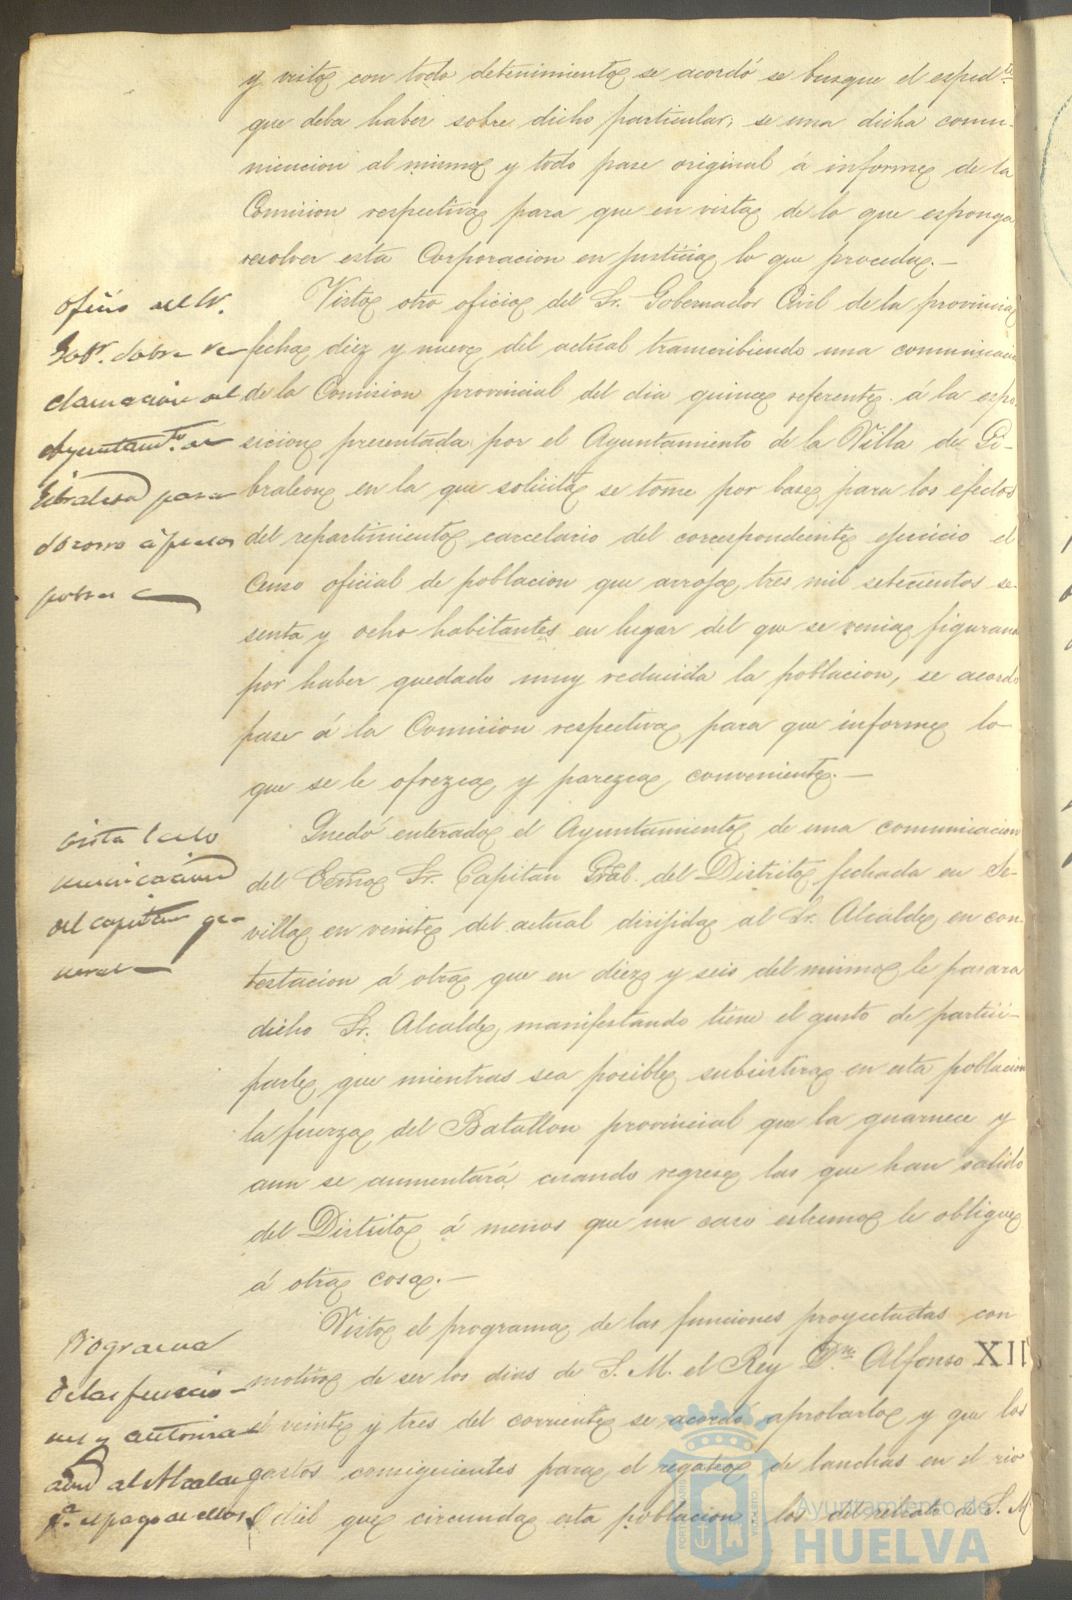 y visto con todo detenimiento se acordó se busque el espedte
que deba haber sobre dicho particular, se una dicha comu-
nicacion al mismo y todo pase original á informe de la
Comision respectiva para que en vista de lo que esponga
resolver esta Corporacion en justicia lo que proceda.—
Oficio del Sr.
Gobr. sobre re-
clamacion del
Ayuntamto. de
Gibraleon para
socorro á presos
pobres
Visto otro oficio del Sr. Gobernador Civil de la provincia
fecha diez y nueve del actual transcribiendo una comunicacion
de la Comision provincial del dia quince referente á la espo-
sicion presentada por el Ayuntamiento de la Villa de Gi-
braleon en la que solicita se tome por base para los efectos
del repartimiento carcelario del correspondiente ejercicio el
Censo oficial de poblacion que arroja tres mil setecientos se-
senta y ocho habitantes en lugar del que se venia figurando
por haber quedado muy reducida la poblacion, se acordó
pase á la Comision respectiva para que informe lo
que se le ofrezca y parezca conveniente.—
Vista la co
municacion
del capitan ge-
neral
Quedó enterado el Ayuntamiento de una comunicacion
del Ecxmo Sr. Capitan Gral. del Distrito fechada en Se-
villa en veinte del actual dirijida al Sr. Alcalde, en con-
testacion á otra que en diez y seis del mismo le pasara
dicho Sr. Alcalde, manifestando tiene el gusto de partici-
parle que mientras sea posible subsistira en esta poblacion
la fuerza del Batallon provincial que la guarnece y
aun se aumentará cuando regrese las que han salido
del Distrito á menos que un caso estremo le obligue
á otra cosa.—
Programa
de las funcio-
nes y autoriza
cion al Alcalde
pa. el pago de ellos
Visto el programa de las funciones proyectadas con
motivo de ser los dias de S. M. el Rey Dn. Alfonso XII
el veinte y tres del corriente se acordó aprobarlo y que los
gastos consiguientes para el regateo de lanchas en el rio
Odiel que circunda esta poblacion los del retrato de S. M
Ayuntamiento de
HUELVA